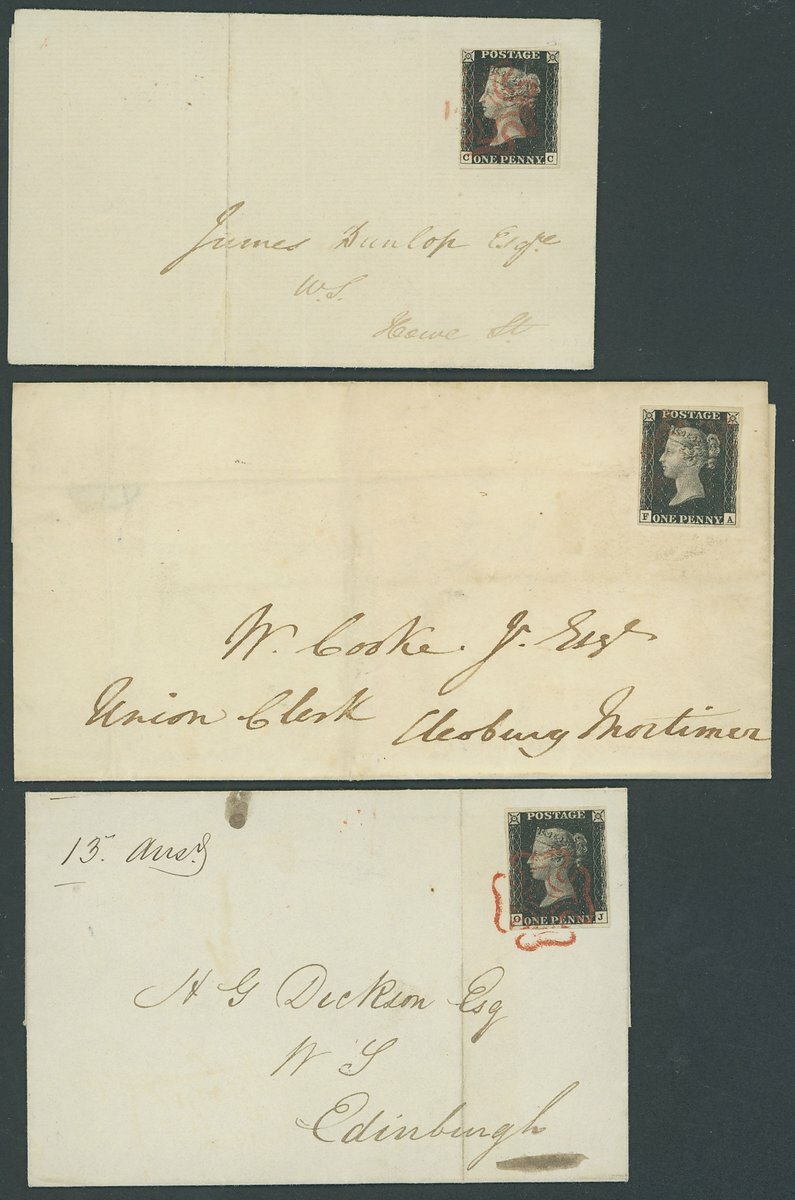 POSTAGE
C ONE PENNY C
James Dunlop Esqre
W.S.
Howe St.
POSTAGE
F ONE PENNY A
W. Cooke. Jr. Esqr
Union Clerk Cleobury Mortimer
POSTAGE
O ONE PENNY J
13. Ansd
H G Dickson Esq
W S
Edinburgh